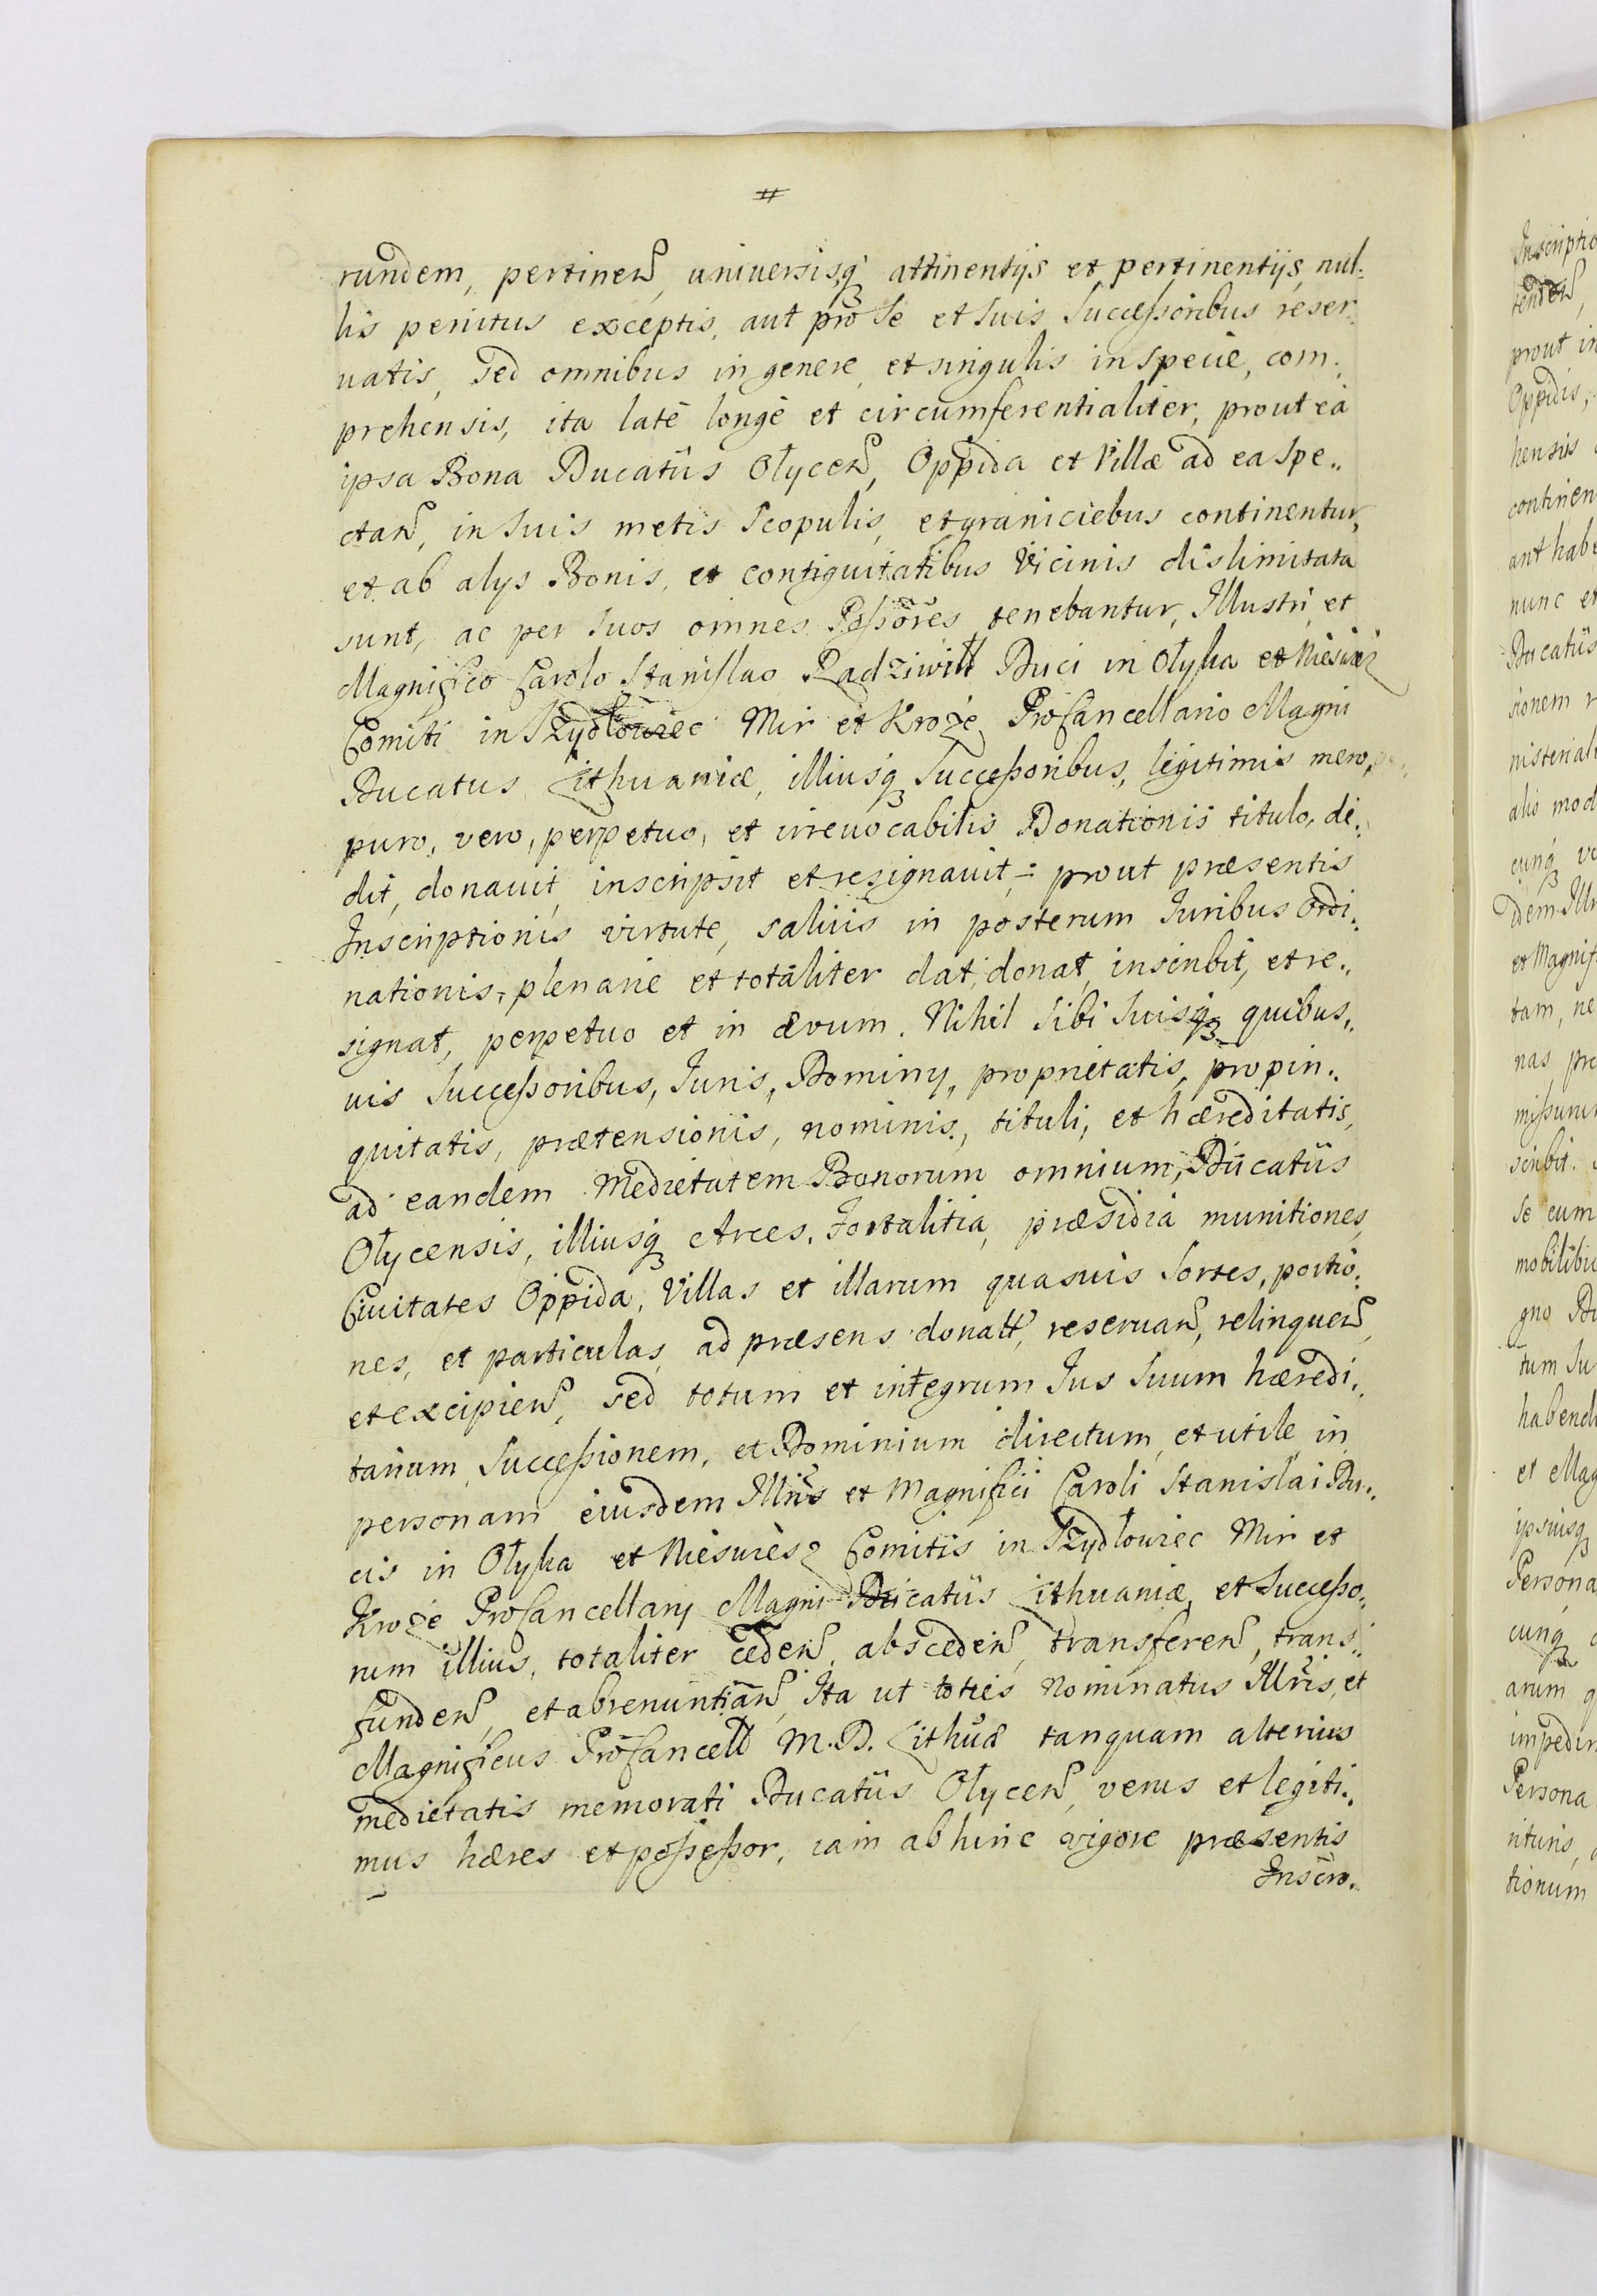 #
rundem, pertinen, universisq attinentijs et pertinentijs, nul-
lis penitus exceptis, aut pro se et suis Successoribus reser-
uatis, sed omnibus in genere, et singulis in specie, com-
prehensis, ita latè longè et circumferentialiter, prout ea
ipsa Bona Ducatûs Ołycen, Oppida et Villæ ad ea spe-
ctan, in suis metis scopulis, et graniciebus continentur,
et ab alys Bonis, et contiguitatibus Vicinis dislimitata
sunt, ac per suos omnes Possores tenebantur, Illustri et
Magnifico Carolo Stanislao Radziwiłł Duci in Ołyka et Nieswiez
Comiti in Szydłowiec Mir et Kroże Procancellario Magni
Ducatus Lithuaniæ, illiusq Successoribus, legitimis mero,
puro, vero, perpetuo, et irreuocabilis Donationis titulo, de-
dit, donauit, inscripsit et resignauit, prout præsentis
Inscriptionis virtute, salvis in posterum Iuribus Ordi-
nationis, plenarie et totaliter dat, donat, inscribit, et re-
signat, perpetuo et in ævum. Nihil sibi suisq quibus-
uis Successoribus, Iuris, Dominy, proprietatis, propin-
quitatis, prætensionis, nominis, tituli, et hæreditatis,
ad eandem Medietatem Bonorum omnium, Ducatûs
Ołycensis, illiusq Arces, Fortalitia, præsidia munitiones,
Ciuitates Oppida, Villas et illarum quasuis Sortes, portio-
nes, et particulas, ad præsens donatt, reseruan, relinquen,
et excipien, sed totum et integrum Ius suum hæredi-
tarium Successionem, et Dominium directum, et utile in
personam eiusdem Illris et Magnifici Caroli Stanislai Du-
cis in Ołyka et Nieswiesz Comitis in Szydłowiec Mir et
Kroże Procancellary Magni Ducatûs Lithuaniæ, et Successo-
rum illius, totaliter ceden, absceden, transferen, trans-
funden, et abrenuntian, Ita ut toties Nominatus Illris, et
Magnificus Procancell M.D. Lithuæ tanquam alterius
medietatis memorati Ducatûs Ołycen, verus et legiti-
mus hæres et possessor, iam ab hinc vigore præsentis
Inscrip-